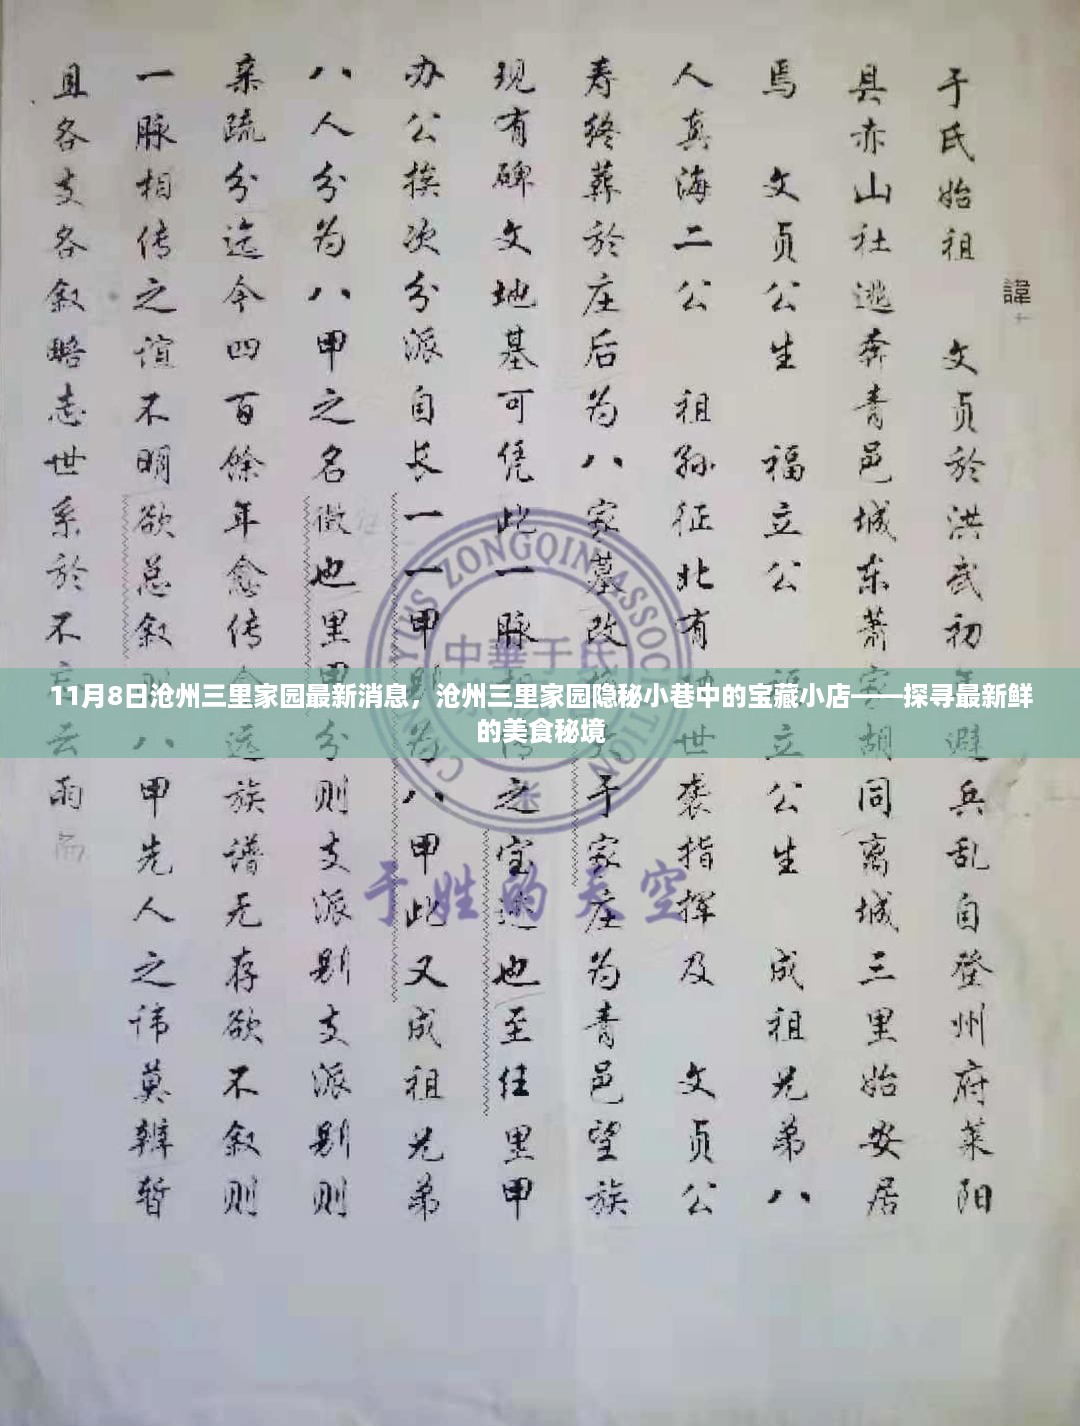 于氏始祖 文贞於洪武初年避兵乱自登州府莱阳
县赤山社逃奔青邑城东萧家胡同离城三里始安居
焉 文贞公生 福立公 福立公生 成祖兄弟八
人真海二公 祖孙征北有 世袭指挥及 文贞公
寿终葬於庄后为八家墓改 于家庄为青邑望族
现有碑文地基可凭此一脉 之 也至住里甲
办公挨次分派自长一一甲 为八甲此又成祖兄弟
八人分为八甲之名徵也里甲分则支派别支派别则
亲疏分迄今四百馀年愈传 远族谱无存欲不叙则
一脉相传之谊不明欲总叙 八甲先人之讳莫辨暂
且各支各叙略志世系於不忘云雨
諱
11月8日沧州三里家园最新消息，沧州三里家园隐秘小巷中的宝藏小店——探寻最新鲜
的美食秘境
YUS ZONGQIN ASSOC
中華于氏
于姓的天空